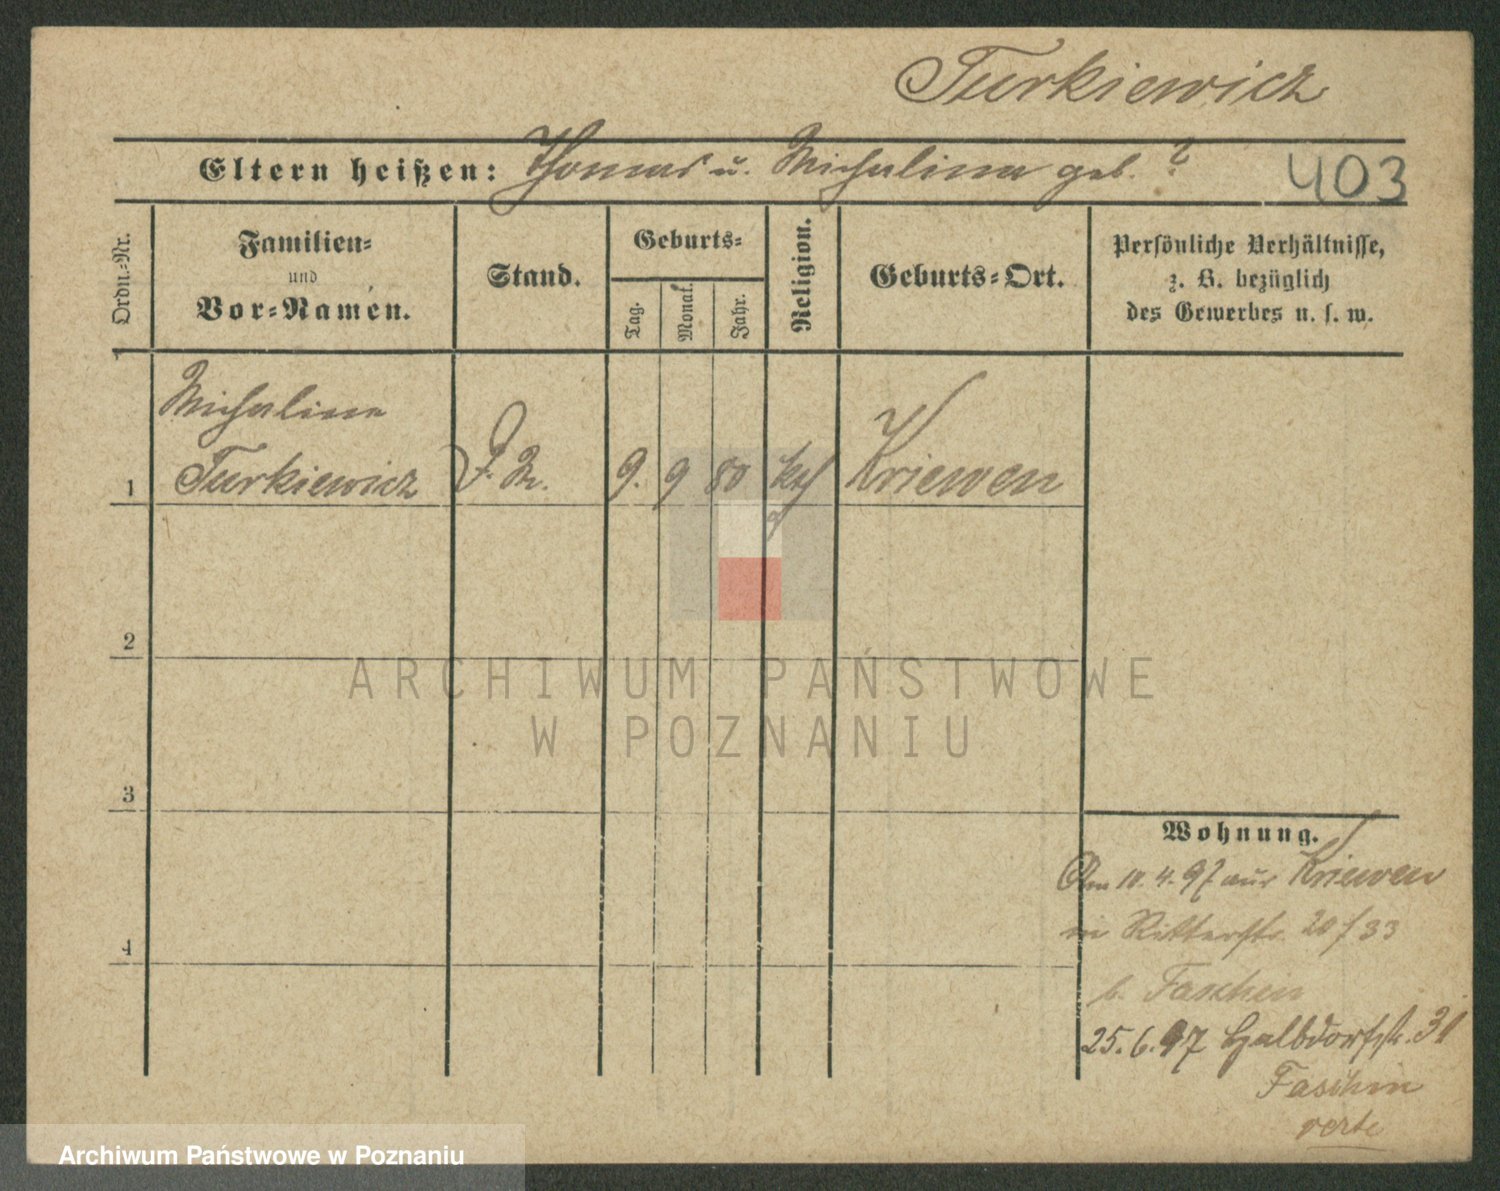 Turkiewicz
Eltern heißen: Thomas u. Michalina geb. ?
403
Ordn.-Nr.
Familien-
und
Vor-Namen.
Stand.
Geburts-
Tag.
Monat.
Jahr.
Religion.
Geburts-Ort.
Persönliche Verhältnisse,
z. B. bezüglich
des Gewerbes u. s. w.
Michalina
1 Turkiewicz D. M. 9. 9 80 kth Kriewen
2
3
4
Wohnung.
Am 10. 4. 97 aus Kriewen
in Ritterstr. 20/33
b. Faschin
25. 6. 97 Halbdorfstr. 31
Faschin
verte
ARCHIWUM PAŃSTWOWE
W POZNANIU
Archiwum Państwowe w Poznaniu